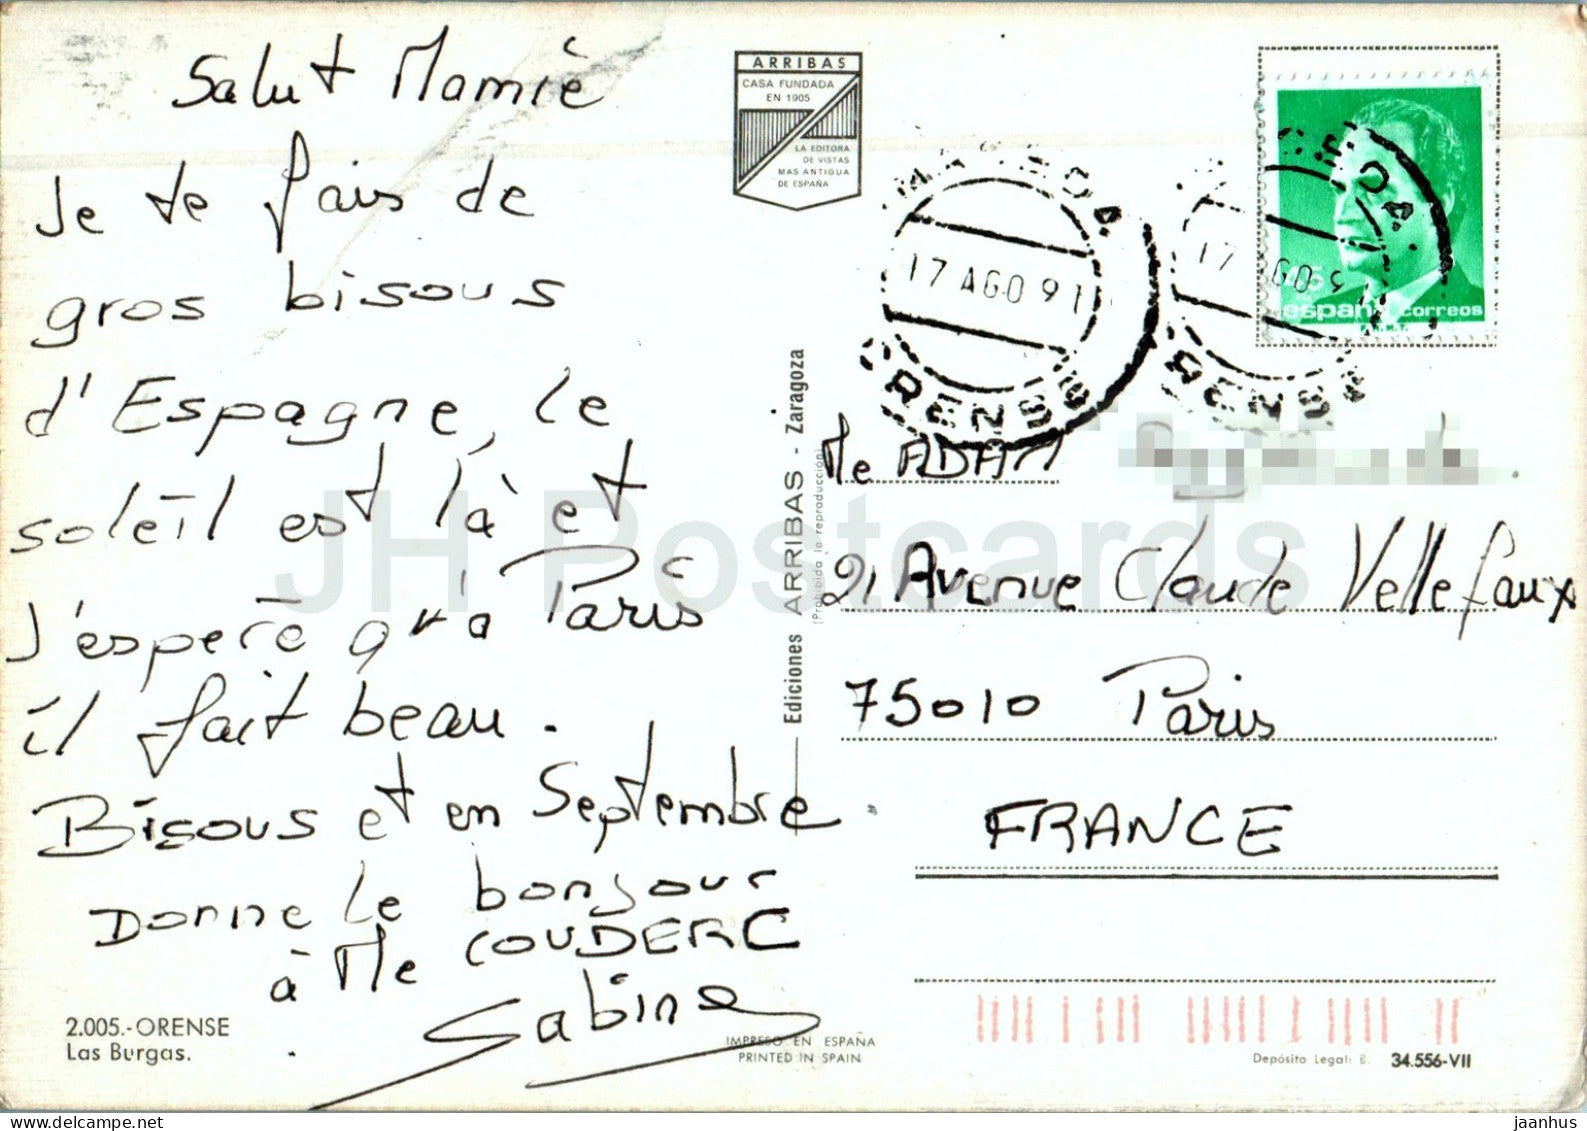 Salut Mamiè
Je te fais de
gros bisous
d'Espagne, le
soleil est là et
J'espère qu'a Paris
il fait beau.
Bisous et en Septembre
Donne le bonjour
à Me COUDERC
Sabine
2.005.-ORENSE
Las Burgas.
ARRIBAS
CASA FUNDADA
EN 1905
LA EDITORA
DE VISTAS
MAS ANTIGUA
DE ESPAÑA
Ediciones ARRIBAS - Zaragoza
(Prohibida la reproducción)
IMPRESO EN ESPAÑA
PRINTED IN SPAIN
17 AGO 91
ORENSE
17 AGO 9
ORENSE
45
españa correos
F.N.M.T.
Me ADAM
21 Avenue Claude Vellefaux
75010 Paris
FRANCE
Depósito Legal: B. 34.556-VII
JH Postcards
jaanhus